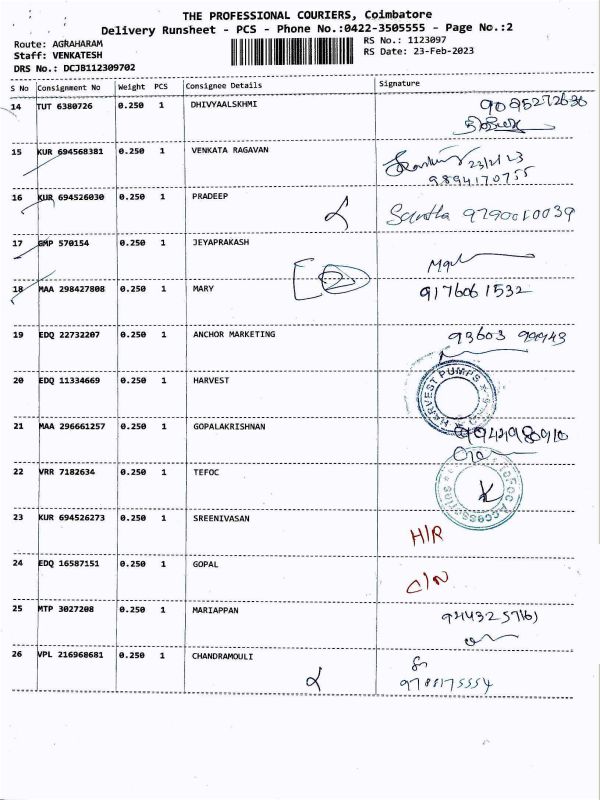 THE PROFESSIONAL COURIERS, Coimbatore
Delivery Runsheet - PCS - Phone No.:0422-3505555 - Page No.:2
Route: AGRAHARAM
RS No.: 1123097
Staff: VENKATESH
RS Date: 23-Feb-2023
DRS No.: DCJB112309702
S No Consignment No Weight PCS Consignee Details Signature
14 TUT 6380726 0.250 1 DHIVYAALSKHMI
15 KUR 694568381 0.250 1 VENKATA RAGAVAN 23/2/23
9894170755
16 KUR 694526030 0.250 1 PRADEEP Santha 9790010039
17 GMP 570154 0.250 1 JEYAPRAKASH
18 MAA 298427808 0.250 1 MARY 9176061532
19 EDQ 22732207 0.250 1 ANCHOR MARKETING 93603 99943
20 EDQ 11334669 0.250 1 HARVEST HARVEST PUMPS
21 MAA 296661257 0.250 1 GOPALAKRISHNAN
22 VRR 7182634 0.250 1 TEFOC
23 KUR 694526273 0.250 1 SREENIVASAN H/R
24 EDQ 16587151 0.250 1 GOPAL C/N
25 MTP 3027208 0.250 1 MARIAPPAN
26 VPL 216968681 0.250 1 CHANDRAMOULI
9788175554